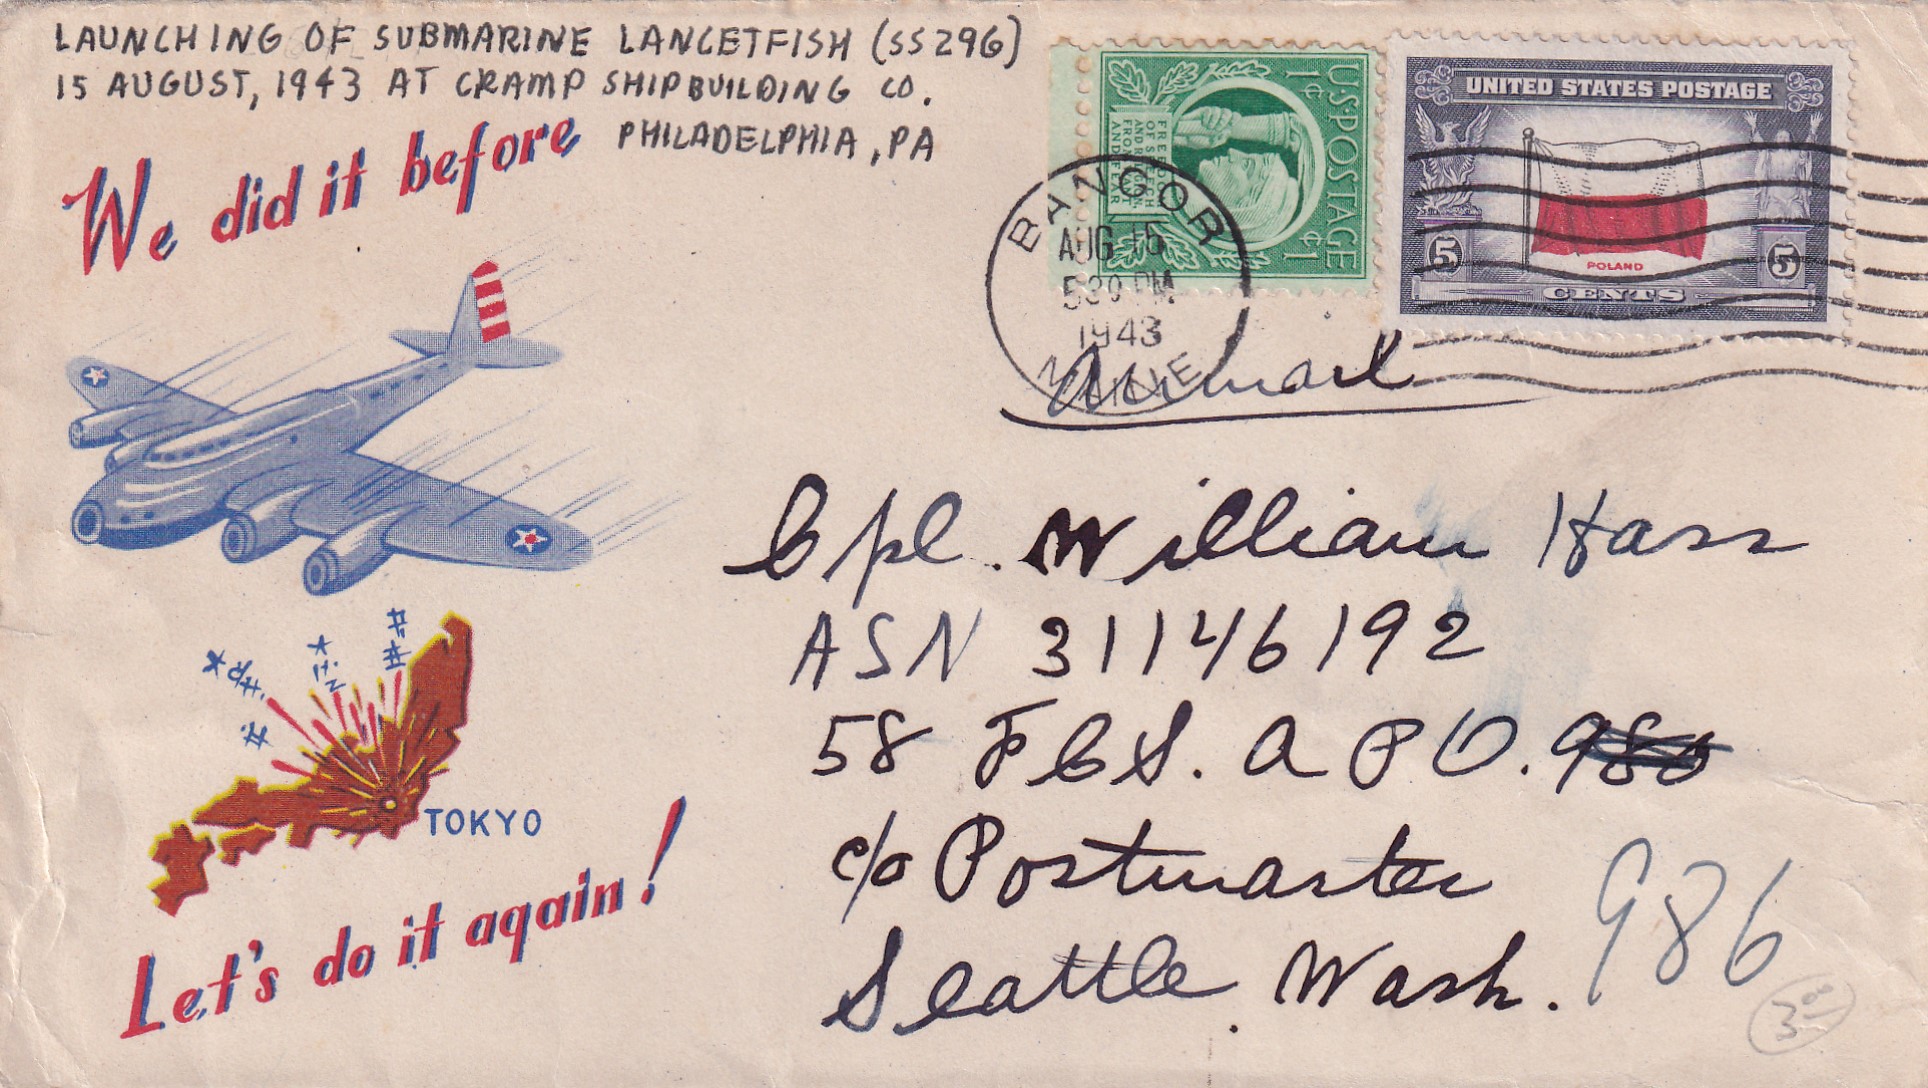 LAUNCHING OF SUBMARINE LANCETFISH (SS296)
15 AUGUST, 1943 AT CRAMP SHIPBUILDING CO.
PHILADELPHIA, PA
We did it before
TOKYO
Let's do it again!
U.S. POSTAGE
1¢
1¢
FREEDOM
OF SPEECH
AND RELIGION,
FROM WANT
AND FEAR
UNITED STATES POSTAGE
POLAND
5 5
CENTS
BANGOR
AUG 15
530 PM
1943
MAINE
Airmail
Cpl. William Hass
ASN 31146192
58 F C S. A P O. 980
c/o Postmaster
986
Seattle, Wash.
3.00